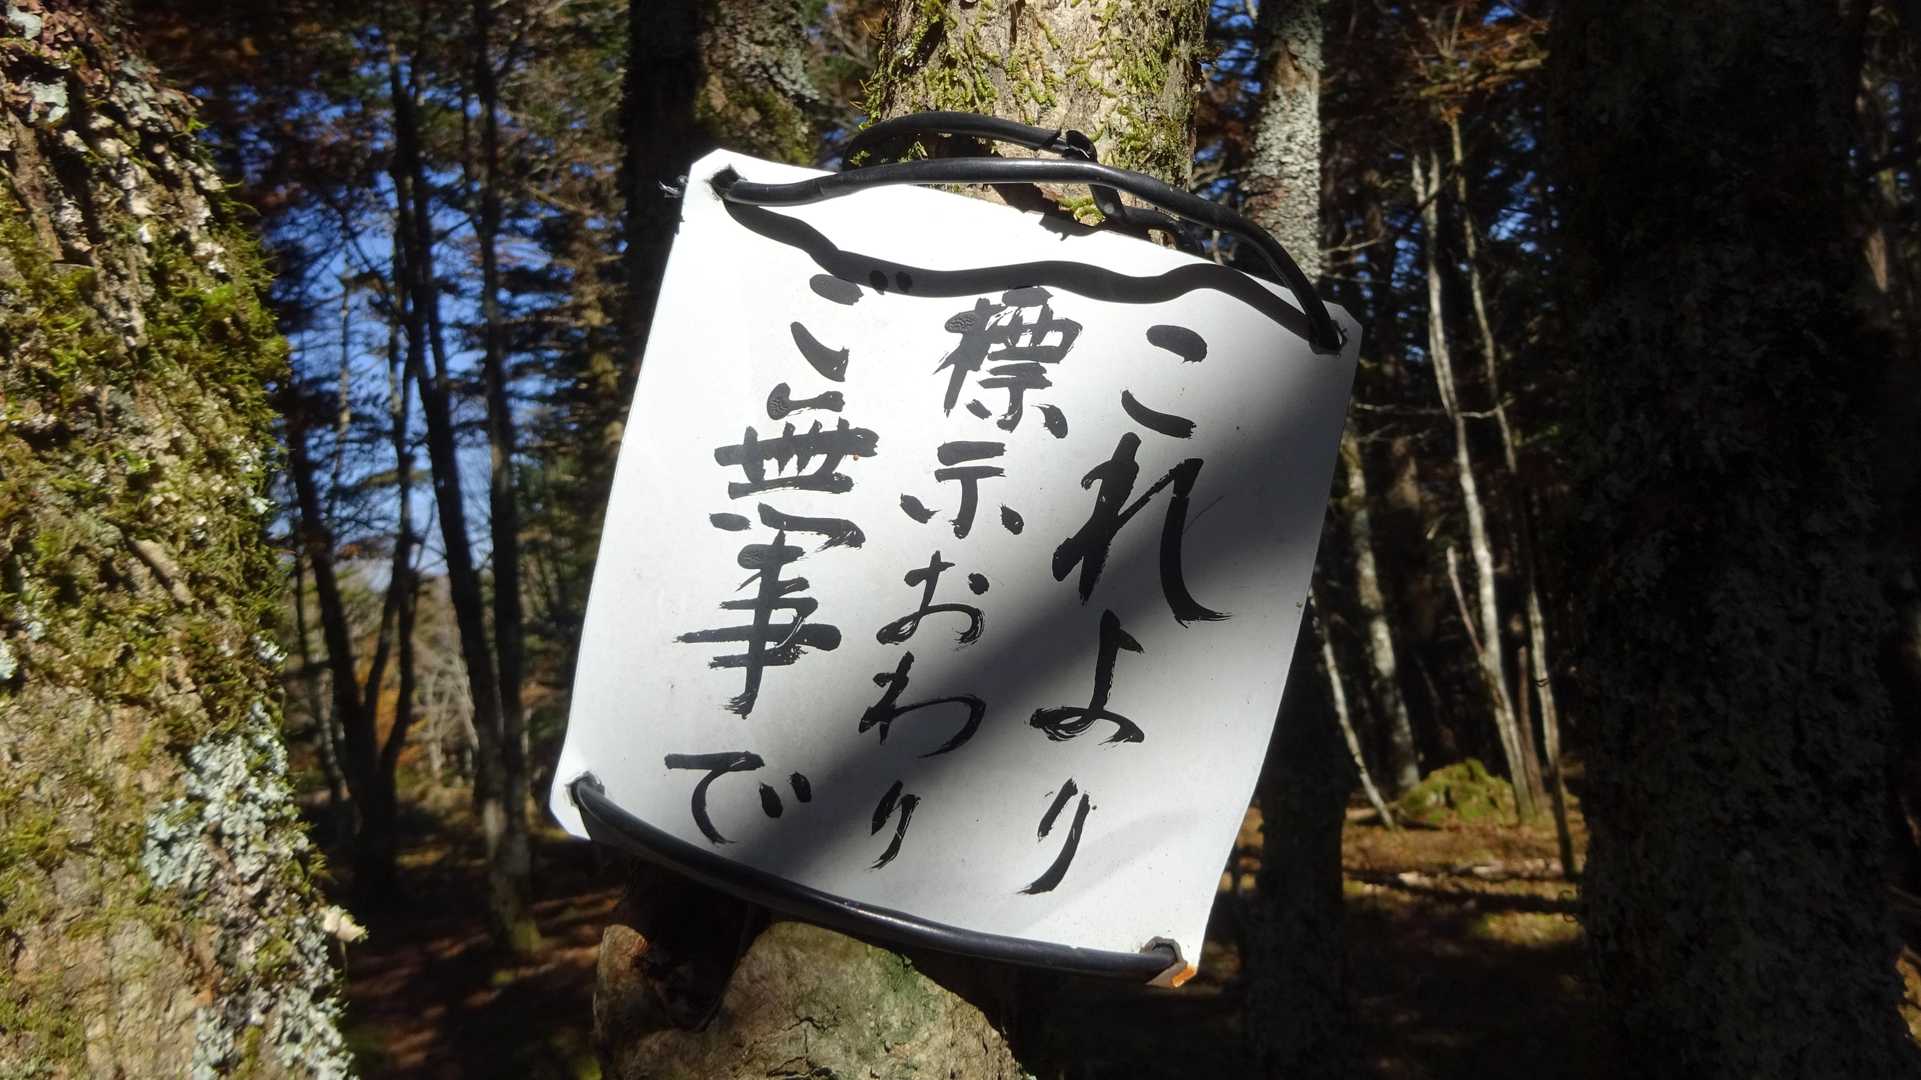 これより
標示おわり
ご無事で